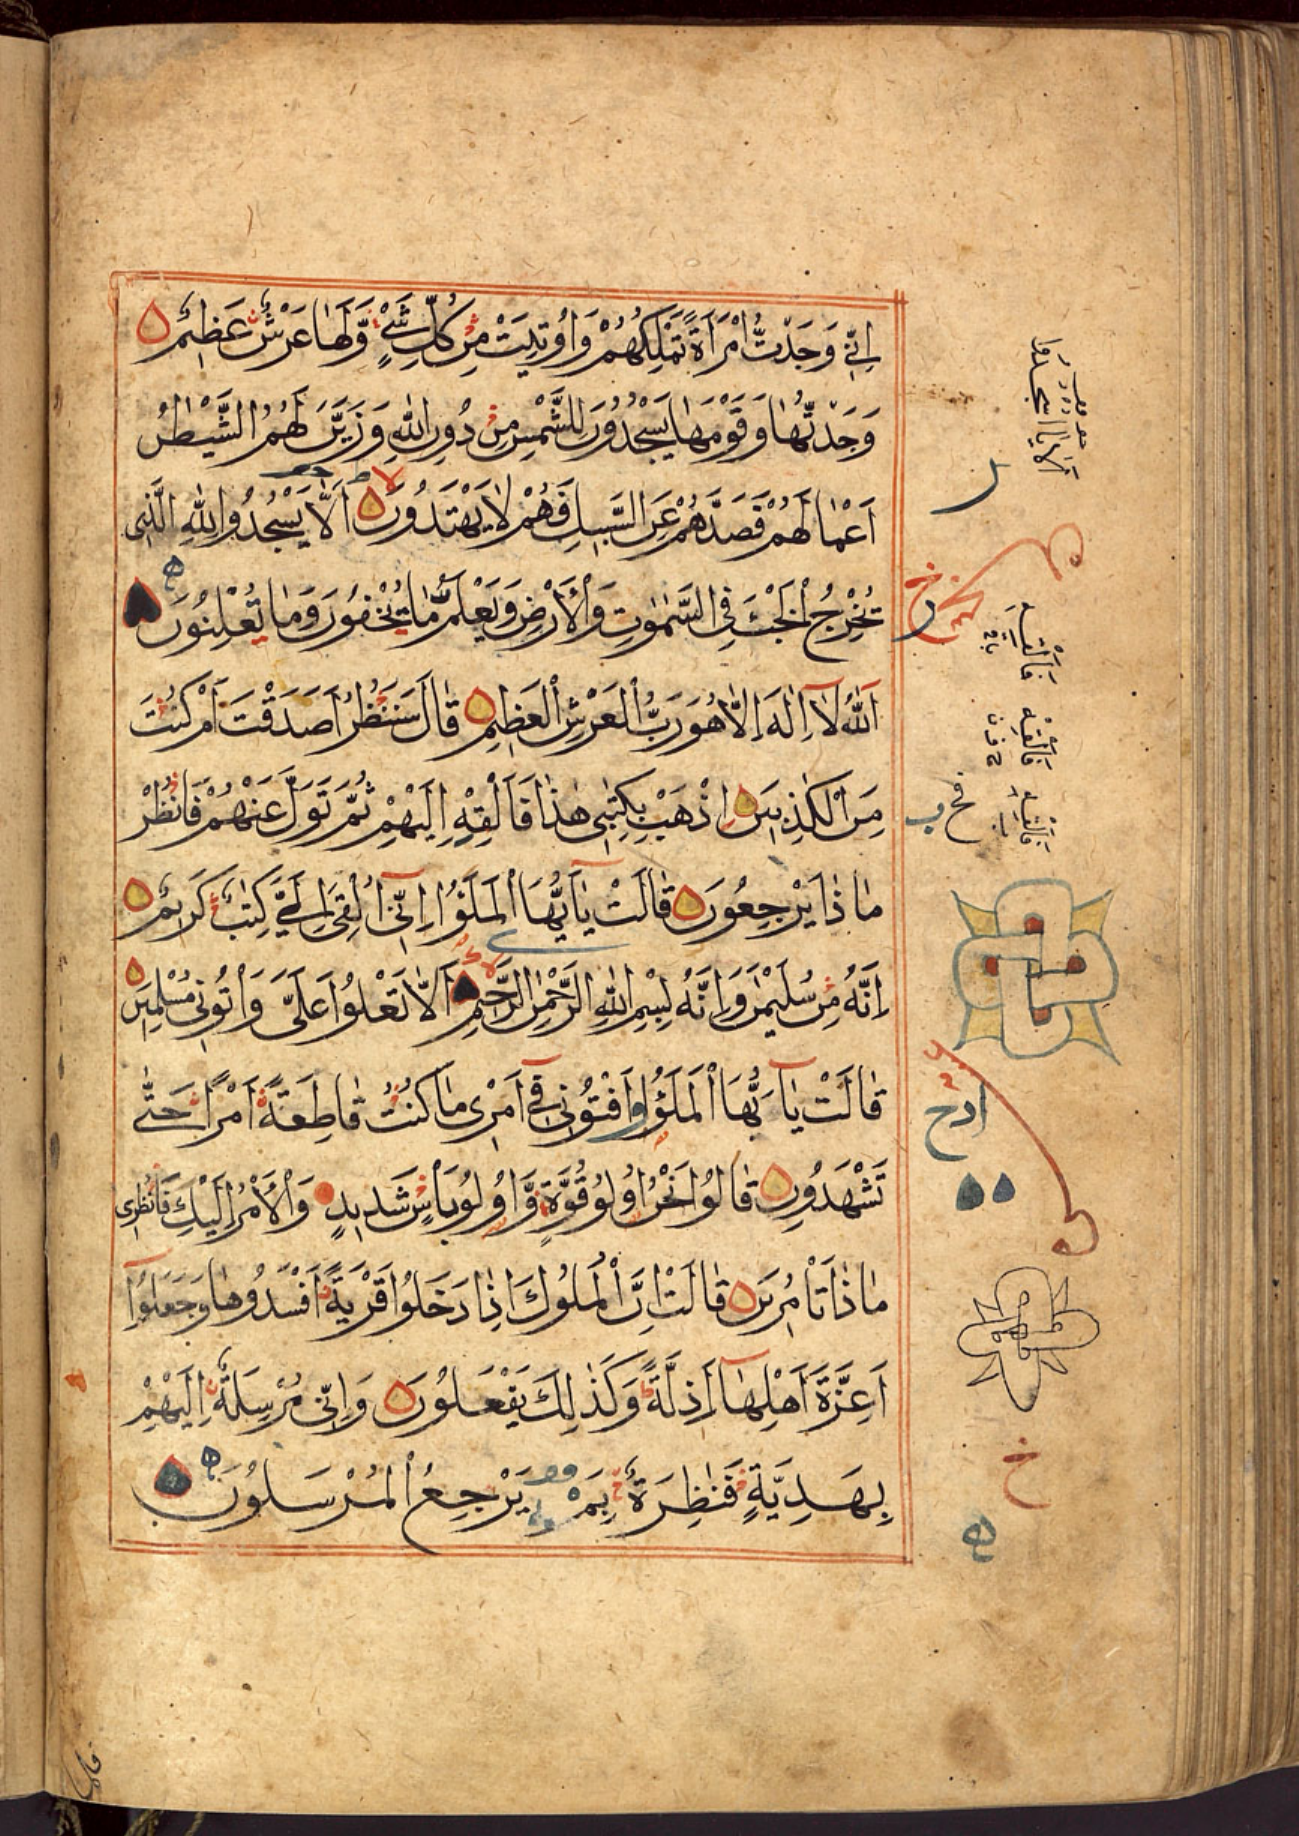 اِنِّي وَجَدْتُّ امْرَاَةً تَمْلِكُهُمْ وَاُوتِيَتْ مِنْ كُلِّ شَيْءٍ وَّلَهَا عَرْشٌ عَظِيمٌ
وَجَدْتُّهَا وَقَوْمَهَا يَسْجُدُونَ لِلشَّمْسِ مِنْ دُونِ اللّٰهِ وَزَيَّنَ لَهُمُ الشَّيْطٰنُ
اَعْمَالَهُمْ فَصَدَّهُمْ عَنِ السَّبِيلِ فَهُمْ لَا يَهْتَدُونَ اَلَّا يَسْجُدُوا لِلّٰهِ الَّذِي
يُخْرِجُ الْخَبْءَ فِي السَّمٰوٰتِ وَالْاَرْضِ وَيَعْلَمُ مَا تُخْفُونَ وَمَا تُعْلِنُونَ
اَللّٰهُ لَا اِلٰهَ اِلَّا هُوَ رَبُّ الْعَرْشِ الْعَظِيمِ قَالَ سَنَنْظُرُ اَصَدَقْتَ اَمْ كُنْتَ
مِنَ الْكٰذِبِينَ اِذْهَبْ بِكِتٰبِي هٰذَا فَاَلْقِهْ اِلَيْهِمْ ثُمَّ تَوَلَّ عَنْهُمْ فَانْظُرْ
مَاذَا يَرْجِعُونَ قَالَتْ يٰٓاَيُّهَا الْمَلَؤُا اِنِّي اُلْقِيَ اِلَيَّ كِتٰبٌ كَرِيمٌ
اِنَّهُ مِنْ سُلَيْمٰنَ وَاِنَّهُ بِسْمِ اللّٰهِ الرَّحْمٰنِ الرَّحِيمِ اَلَّا تَعْلُوا عَلَيَّ وَاْتُونِي مُسْلِمِينَ
قَالَتْ يٰٓاَيُّهَا الْمَلَؤُا اَفْتُونِي فِي اَمْرِي مَا كُنْتُ قَاطِعَةً اَمْرًا حَتّٰى
تَشْهَدُونِ قَالُوا نَحْنُ اُولُو قُوَّةٍ وَّاُولُو بَاْسٍ شَدِيدٍ وَالْاَمْرُ اِلَيْكِ فَانْظُرِي
مَاذَا تَاْمُرِينَ قَالَتْ اِنَّ الْمُلُوكَ اِذَا دَخَلُوا قَرْيَةً اَفْسَدُوهَا وَجَعَلُوا
اَعِزَّةَ اَهْلِهَا اَذِلَّةً وَكَذٰلِكَ يَفْعَلُونَ وَاِنِّي مُرْسِلَةٌ اِلَيْهِمْ
بِهَدِيَّةٍ فَنٰظِرَةٌ بِمَ يَرْجِعُ الْمُرْسَلُونَ